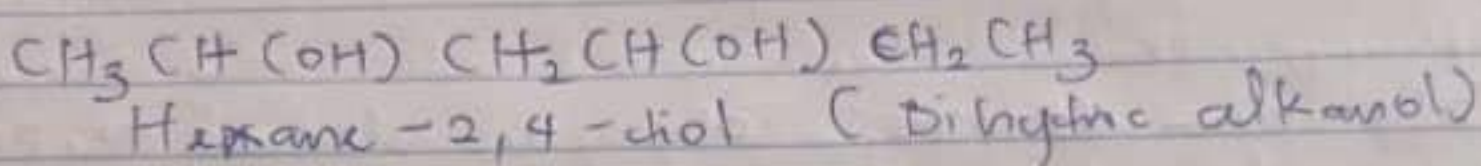 CH₃ CH (OH) CH₂ CH (OH) CH₂ CH₃
Hexane - 2, 4 - diol ( Dihydric alkanol)